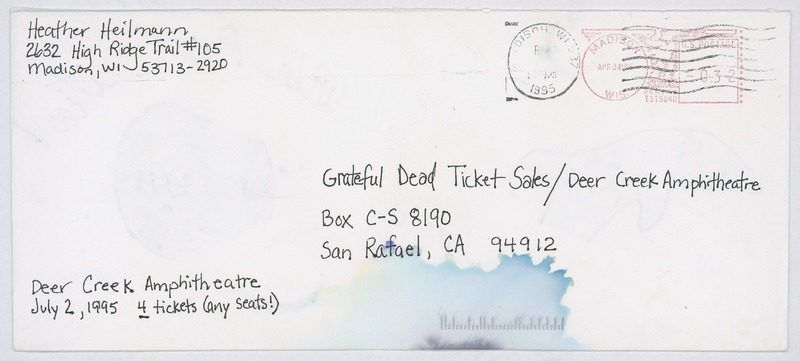 Heather Heilmann
2632 High Ridge Trail #105
Madison, WI 53713-2920
MADISON, WI 537
PM
1995
MADISON
APR 24 '95
WIS.
U.S. POSTAGE
0.32
Grateful Dead Ticket Sales/Deer Creek Amphitheatre
Box C-S 8190
San Rafael, CA 94912
Deer Creek Amphitheatre
July 2, 1995 4 tickets (any seats!)